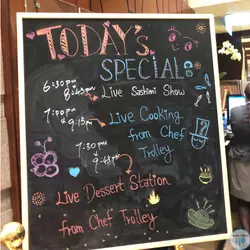 TODAY's
SPECIAL
6:30pm
8:45pm
Live Sashimi Show
7:00pm
9:15pm
Live Cooking
from Chef
Trolley
7:30pm
9:45pm
Live Dessert Station
from Chef Trolley